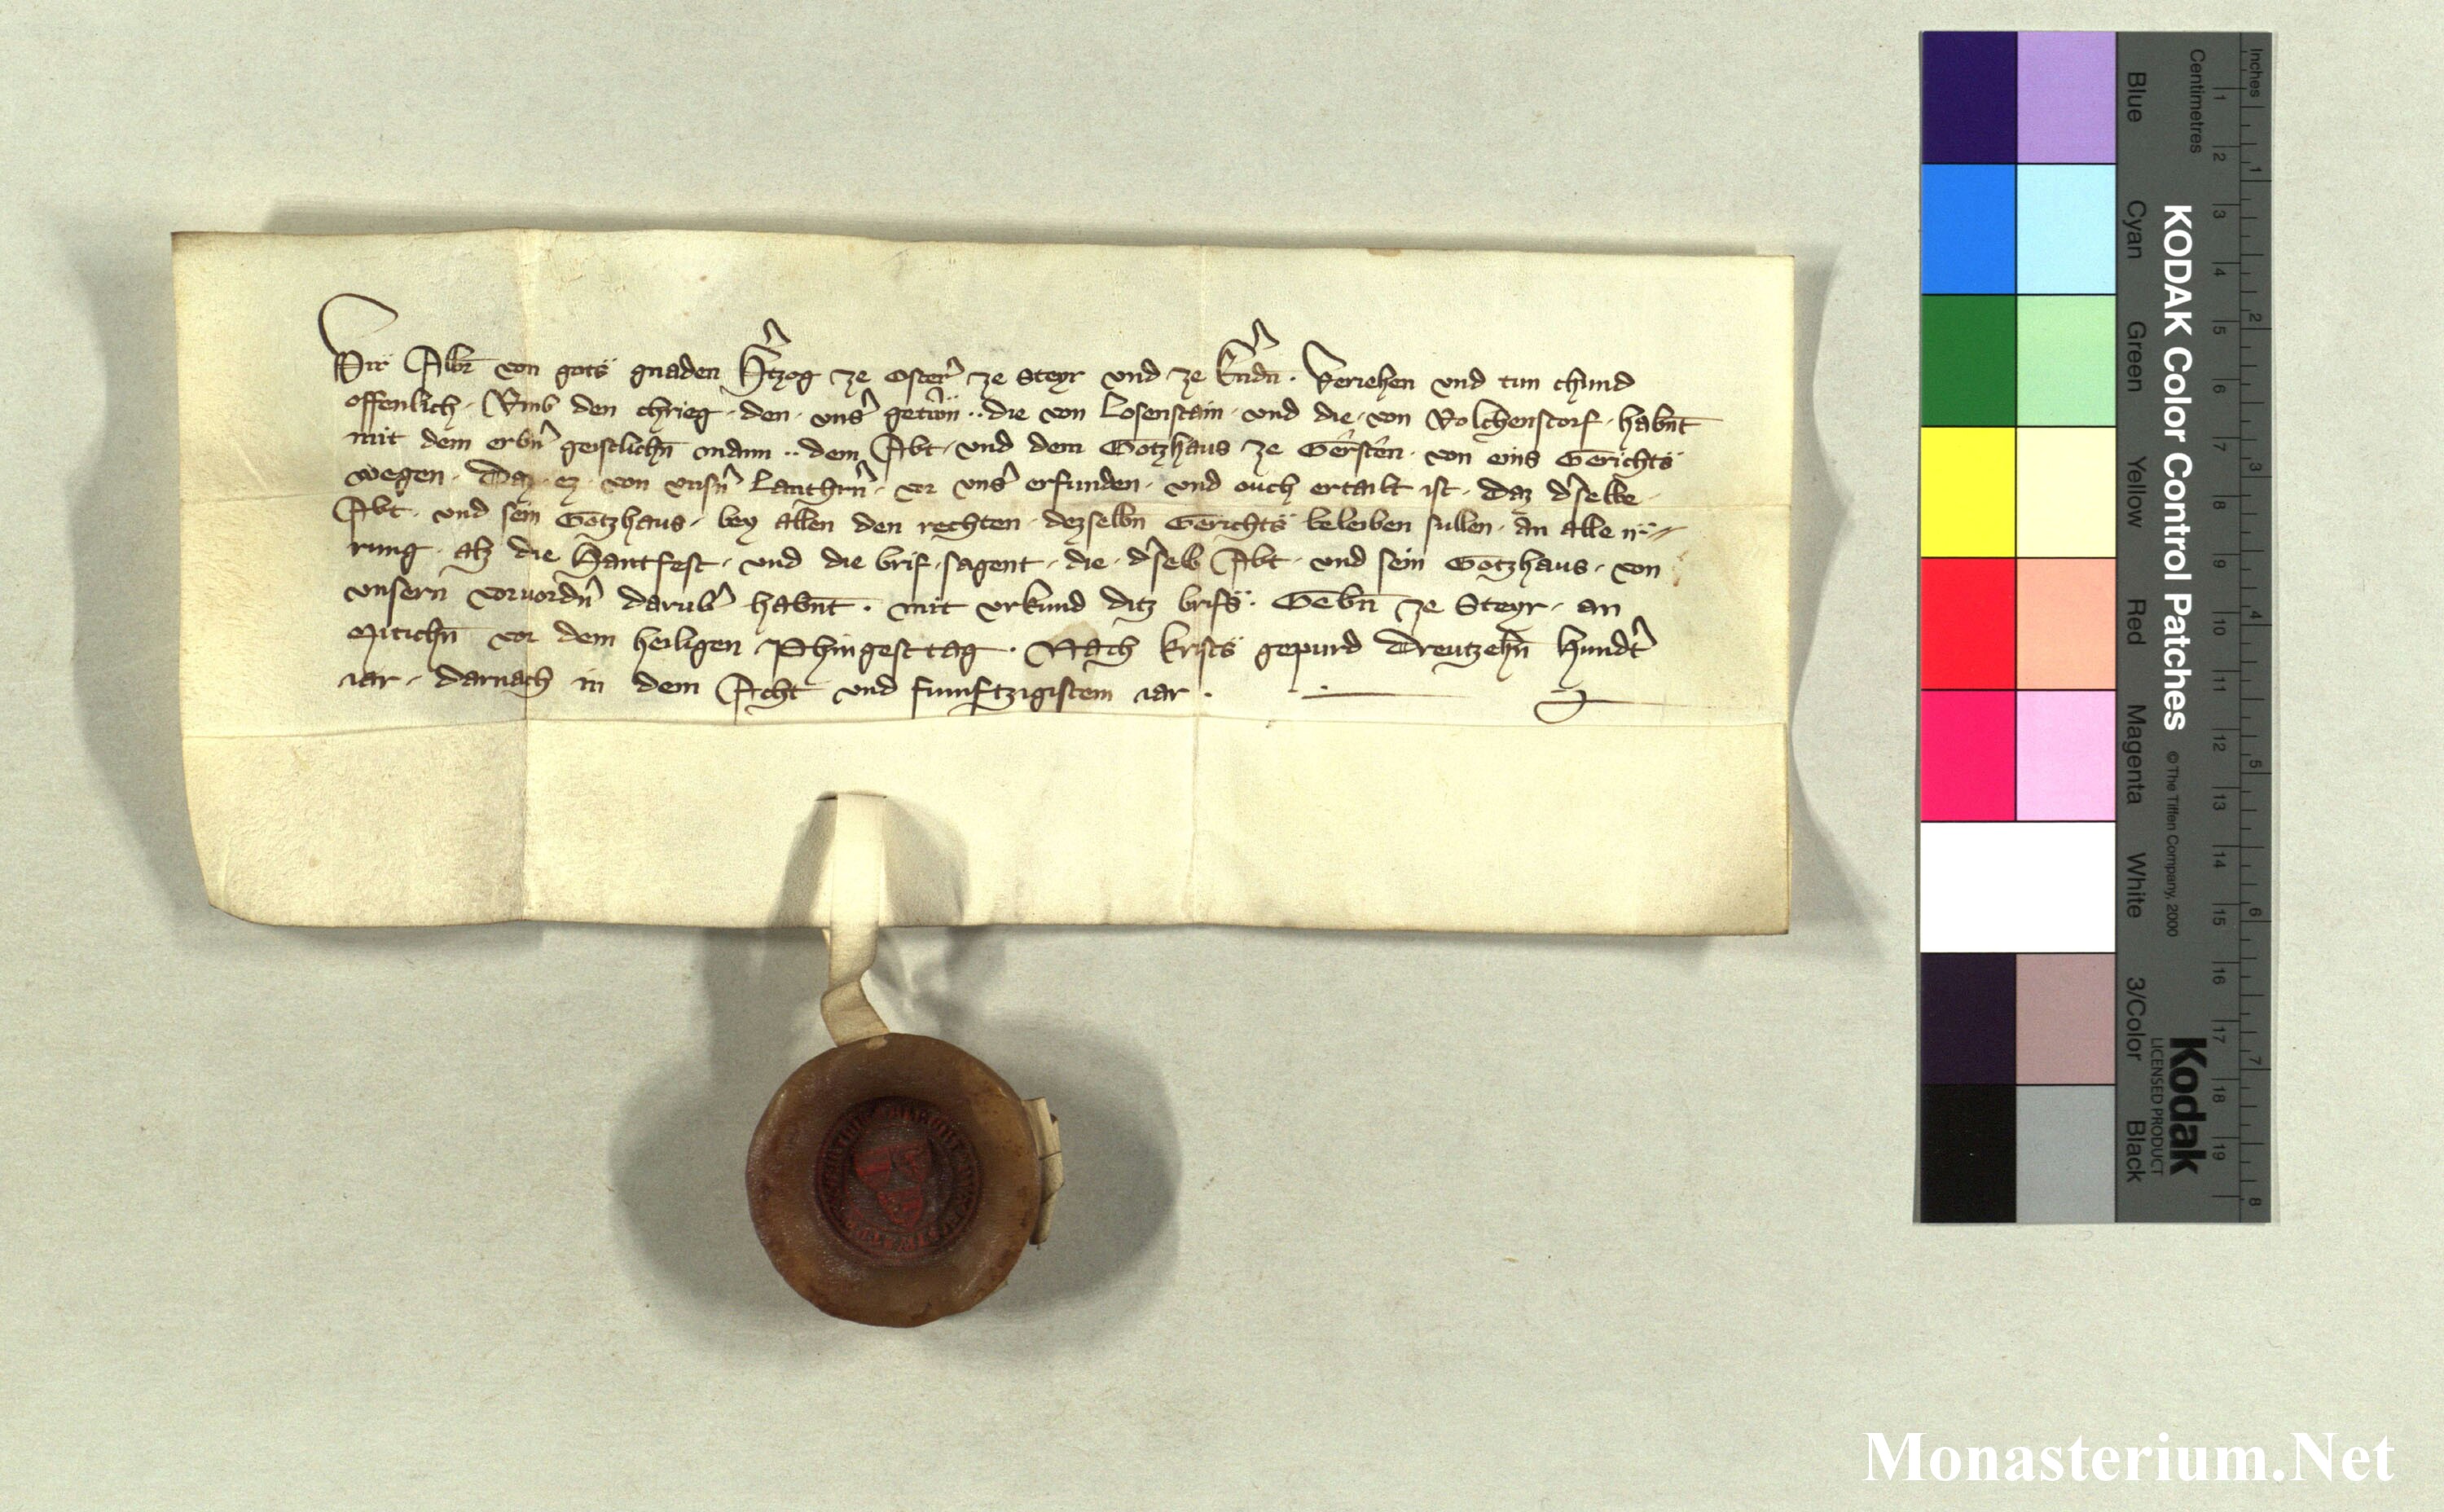 Wir Albr̄ von gots gnaden Hˀtzog ze Osterˀ ze Steyr vnd ze Kˀndn̄ . Veriehen vnd tun chund
offenlich . Vmb den chrieg . den . vnsˀ getrŵn .. die von Losenstain . vnd die . von Volchenstorf . habnt̄
mit dem erbnˀ geistlichn̄ mann .. dem Abt . vnd dem Gotzhaus . ze Gersten . von eins Gerichts
wegen . Daz . ez . von vnsnˀ Lanthrnˀ . vor vnsˀ erfunden . vnd ouch ertailt ist . daz dˀselbe
Abt . vnd sein Gotzhaus . bey allen den rechten . dezselbn̄ Gerichts beleiben sullen . an alle irr
rung . alz die Hantfest . vnd die brif . sagent . die . dˀselb Abt . vnd sein Gotzhaus . von
vnsern voruordnˀ darubˀ habnt̄ . mit vrkund ditz brifs . Gebn̄ ze Steyr . an
Mitichn̄ vor dem heiligen Phingesttag . Nach krists gepurd Dreutzehn̄ Hundtˀ
iar . darnach in dem Acht vnd fumftzigistem iar .
Inches
Centimetres
1 2 3 4 5 6 7 8 9 10 11 12 13 14 15 16 17 18 19
1 2 3 4 5 6 7 8
Blue Cyan Green Yellow Red Magenta White 3/Color Black
KODAK Color Control Patches
© The Tiffen Company, 2000
Kodak
LICENSED PRODUCT
Monasterium.Net